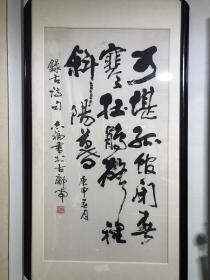 可堪孤館閉春
寒杜鵑聲裡
斜陽暮 庚申月
錄古詩句 書於古南